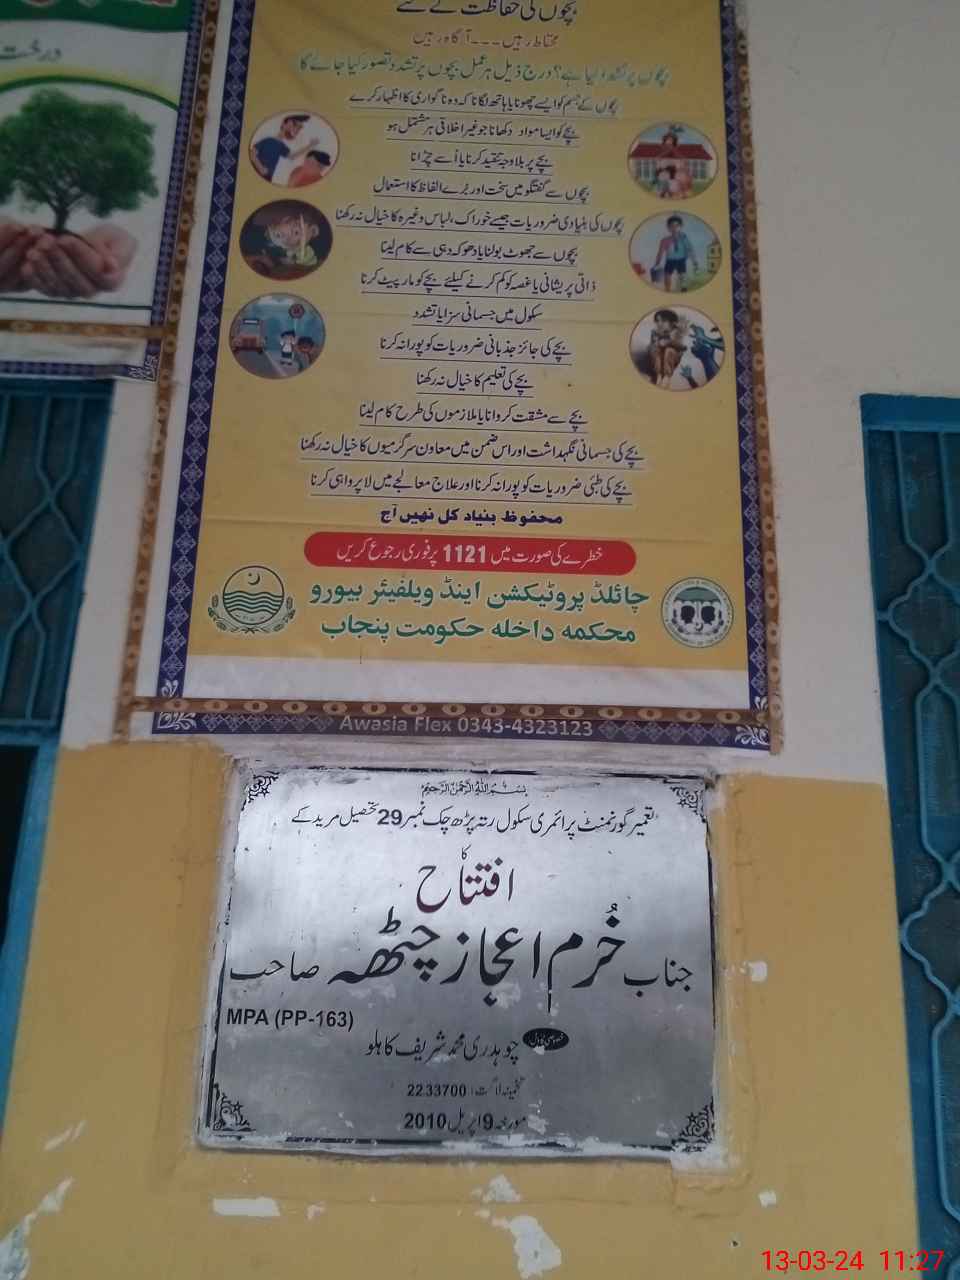 درخت
بچوں کی حفاظت کے لئے
محتاط رہیں ۔۔۔ آگاہ رہیں
بچوں پر تشدد کیا ہے؟ درج ذیل ہر عمل بچوں پر تشدد تصور کیا جائے گا
بچوں کے جسم کو ایسے چھونا یا ہاتھ لگانا کہ وہ ناگواری کا اظہار کرے
بچے کو ایسا مواد دکھانا جو غیر اخلاقی ہو مشتمل ہو
بچے پر بلاوجہ تنقید کرنا یا اُسے چڑانا
بچوں سے گفتگو میں سخت اور بُرے الفاظ کا استعمال
بچوں کی بنیادی ضروریات جیسے خوراک، لباس وغیرہ کا خیال نہ رکھنا
بچوں سے جھوٹ بولنا یا دھوکہ دہی سے کام لینا
ذاتی پریشانی یا غصہ کو کم کرنے کیلئے بچے کو مار پیٹ کرنا
سکول میں جسمانی سزا یا تشدد
بچے کی جائز جذباتی ضروریات کو پورا نہ کرنا
بچے کی تعلیم کا خیال نہ رکھنا
بچے سے مشقت کروانا یا ملازموں کی طرح کام لینا
بچے کی جسمانی نگہداشت اور اس ضمن میں معاون سرگرمیوں کا خیال نہ رکھنا
بچے کی طبی ضروریات کو پورا نہ کرنا اور علاج معالجے میں لاپرواہی کرنا
محفوظ بنیاد کل نھیں آج
خطرے کی صورت میں 1121 پر فوری رجوع کریں
چائلڈ پروٹیکشن اینڈ ویلفیئر بیورو
محکمہ داخلہ حکومت پنجاب
Awasia Flex 0343-4323123
بسم اللہ الرحمٰن الرحیم
تعمیر گورنمنٹ پرائمری سکول رتہ پڑھ چک نمبر 29 تحصیل مریدکے
کا
افتتاح
جناب خُرم اعجاز چٹھہ صاحب
MPA (PP-163)
خصوصی کاوش چوہدری محمد شریف کاہلو
تخمینہ لاگت: 2233700
مورخہ 9 اپریل 2010
13-03-24 11:27